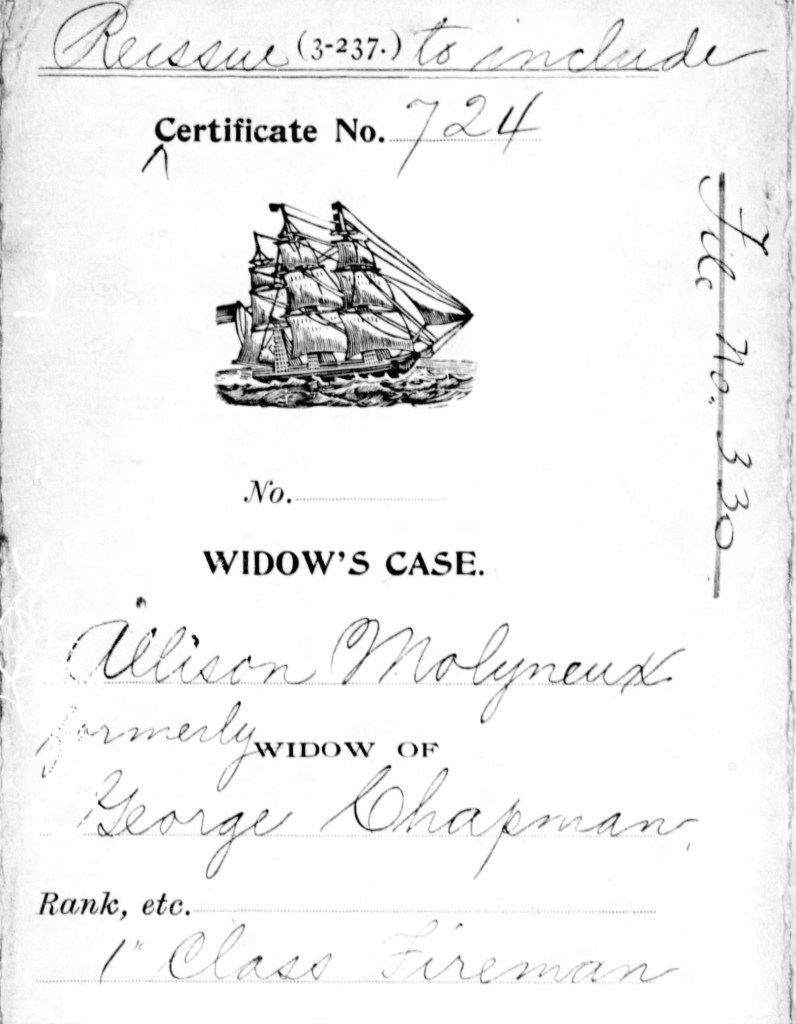 Reissue (3-237.) to include
Certificate No. 724
File No. 330
No.
WIDOW'S CASE.
Allison Molyneux
formerly WIDOW OF
George Chapman,
Rank, etc.
1" Class Fireman